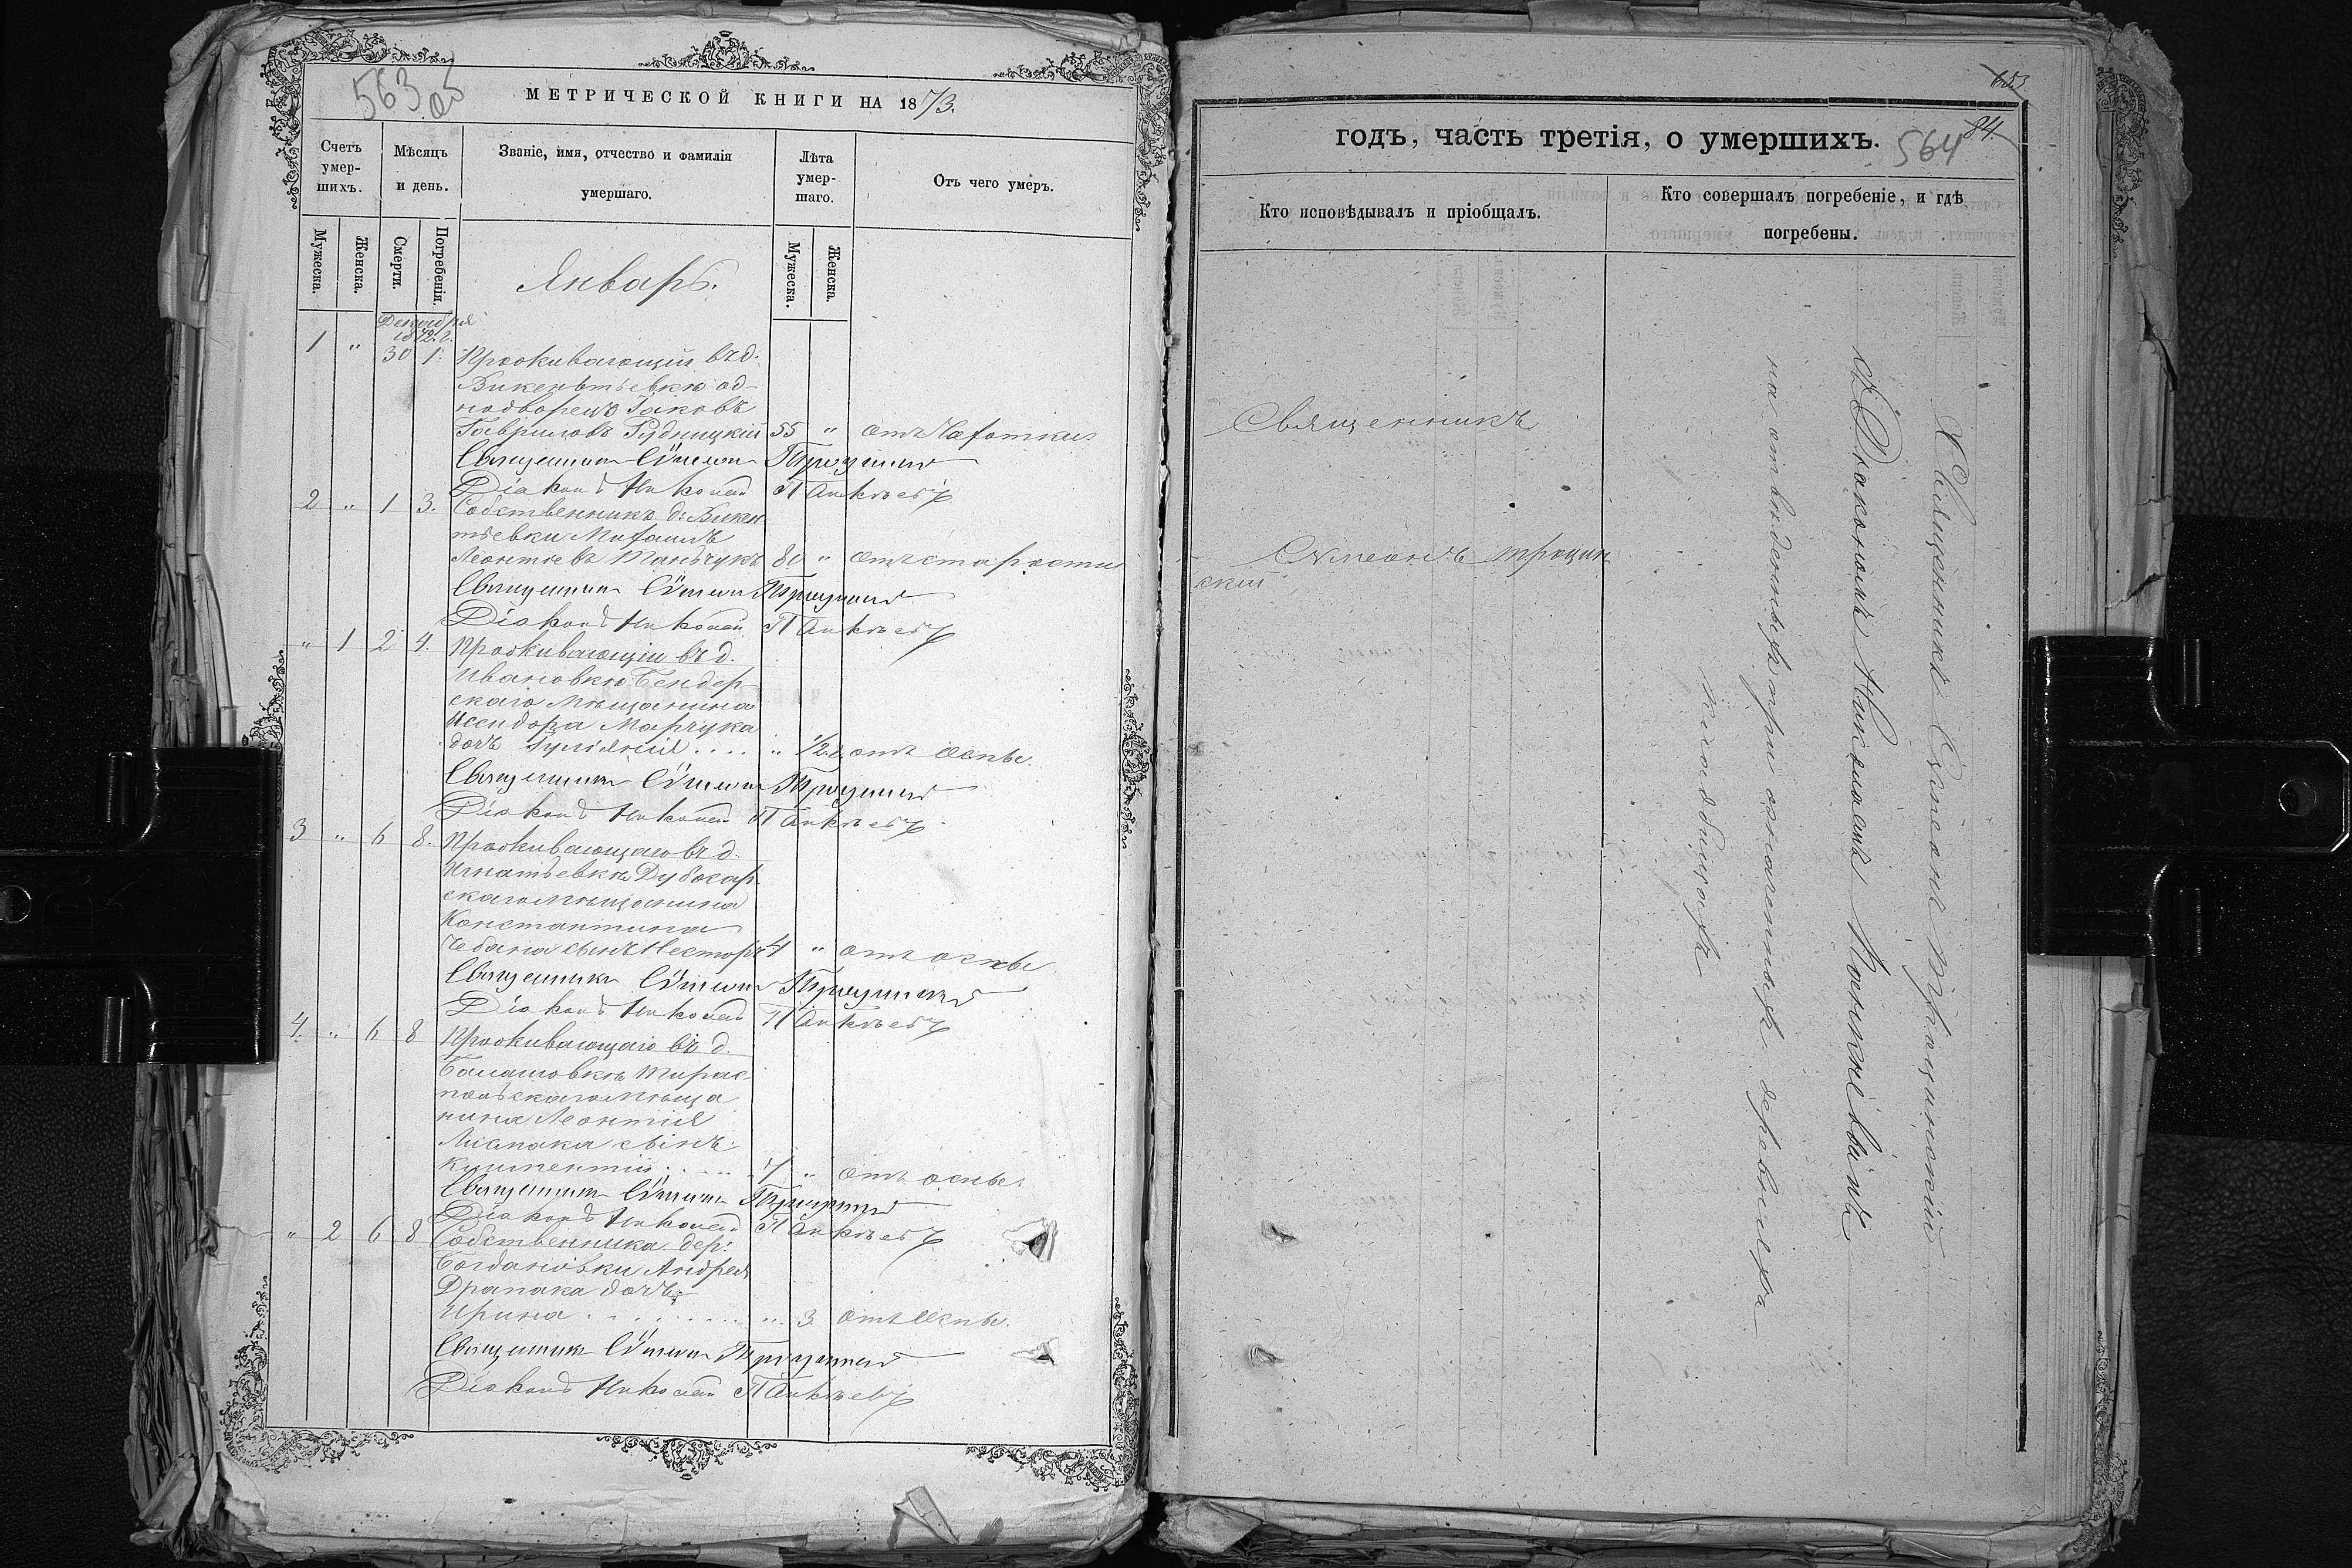 563 об
МЕТРИЧЕСКОЙ КНИГИ НА 1873.
Счетъ умер-шихъ.
Мѣсяцъ и день.
Званіе, имя, отчество и фамилія умершаго.
Лѣта умер-шаго.
Отъ чего умеръ.
Мужеска.
Женска.
Смерти.
Погребенія.
Мужеска.
Женска.
Январь.
Декабря
1872 г.
1 " 30 1. Проживающій въ д.
Викентьевкѣ од-
нодворецъ Іаковъ
Гавриловъ Рудницкій 55 " отъ чахотки
Священникъ Симеонъ Троцинскій
Діаконъ Николай Панкѣевъ
2 " 1 3. Собственникъ д: Викен
тьевки Михаилъ
Леонтьевъ Танчукъ 80 " отъ старости
Священникъ Симеонъ Троцинскій
Діаконъ Николай Панкѣевъ
" 1 2 4. Проживающій въ д.
Ивановкѣ Бендер-
скаго мѣщанина
Исидора Марчука
дочь Іуліанія .... " 1/2 г. отъ оспы.
Священникъ Симеонъ Троцинскій
Діаконъ Николай Панкѣевъ
3 " 6 8. Проживающаго въ д.
Игнатьевкѣ Дубосар
скаго мѣщанина
Константина
Чебана сынъ Несторъ 4 " отъ оспы
Священникъ Симеонъ Троцинскій
Діаконъ Николай Панкѣевъ
4. " 6 8 Проживающаго въ д.
Балашовкѣ Тирас-
польскаго мѣща
нина Леонтія
сынъ
7 " отъ оспы
Священникъ Симеонъ Троцинскій
Діаконъ Николай Панкѣевъ
" 2 6 8 Собственника дер:
Богдановки Андрея
Драпака дочь
Ирина ........ " 3 отъ оспы.
Священникъ Симеонъ Троцинскій
Діаконъ Николай Панкѣевъ
84.
564
годъ, часть третія, о умершихъ.
Кто исповѣдывалъ и пріобщалъ.
Кто совершалъ погребеніе, и гдѣ погребены.
Священникъ
Симеонъ Троцин
скій
Священникъ Симеонъ Троцинскій
съ Діакономъ Николаемъ Панкѣевымъ
на отведенныхъ при означенныхъ деревняхъ
кладбищахъ